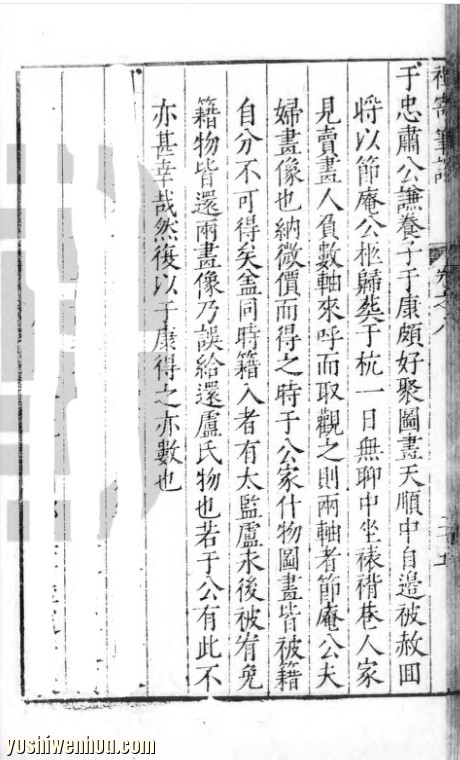 于忠肅公謙養子于康頗好聚圖畫天順中自邊被赦囬
將以節庵公柩歸葬于杭一日無聊中坐裱褙巷人家
見賣畫人負數軸來呼而取觀之則兩軸者節庵公夫
婦畫像也納微價而得之時于公家什物圖畫皆被籍
自分不可得矣盖同時籍入者有太監盧永後被宥免
籍物皆還兩畫像乃誤給還盧氏物也若于公有此不
亦甚幸哉然復以于康得之亦數也
yushiwenhua.com